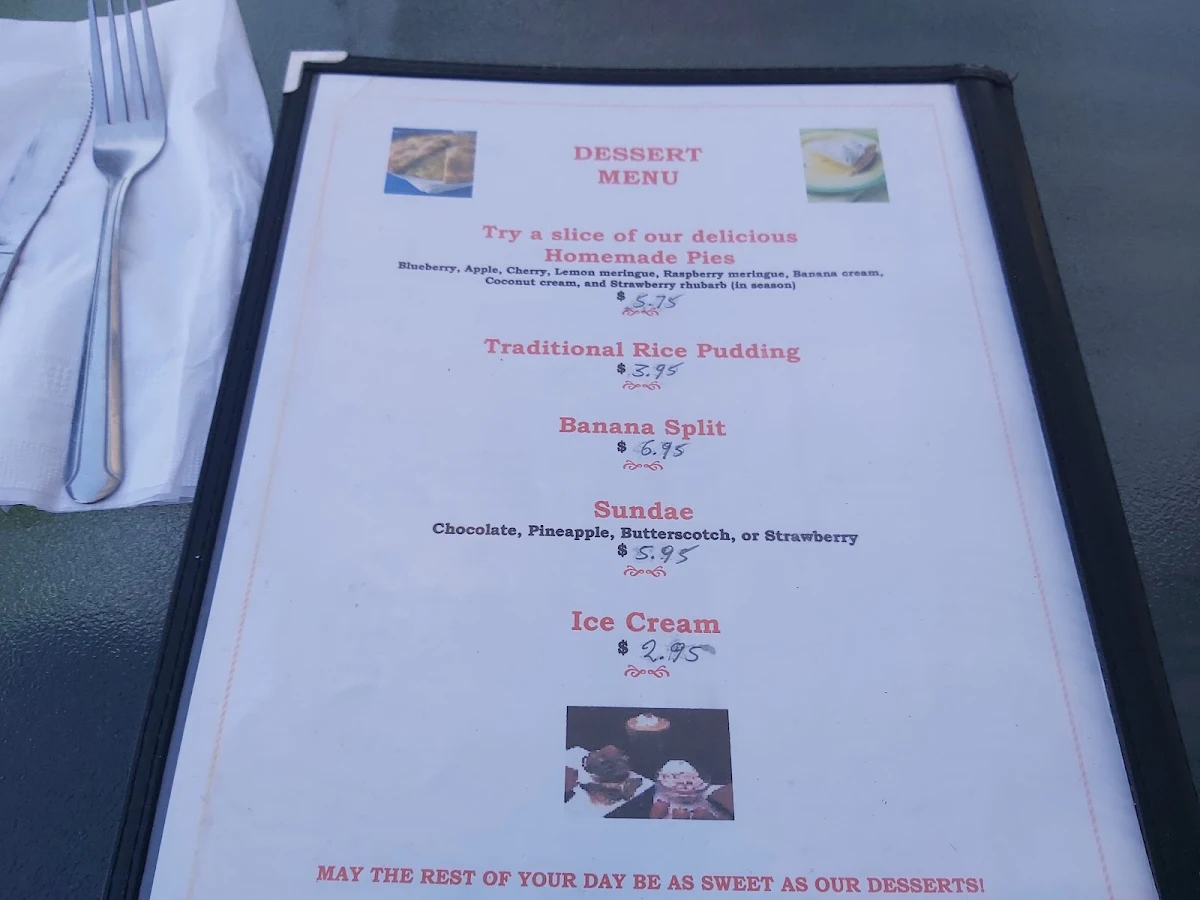 DESSERT
MENU
Try a slice of our delicious
Homemade Pies
Blueberry, Apple, Cherry, Lemon meringue, Raspberry meringue, Banana cream,
Coconut cream, and Strawberry rhubarb (in season)
$ 5.75
Traditional Rice Pudding
$ 3.95
Banana Split
$ 6.95
Sundae
Chocolate, Pineapple, Butterscotch, or Strawberry
$ 5.95
Ice Cream
$ 2.95
MAY THE REST OF YOUR DAY BE AS SWEET AS OUR DESSERTS!